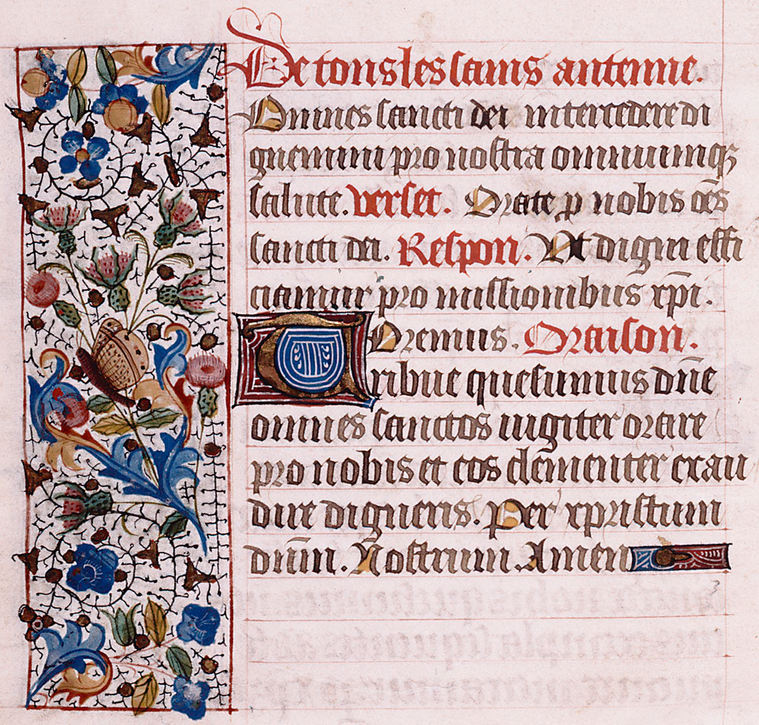 De tous les sains antenne.
Omnes sancti dei intercedere di
gnemini pro nostra omniumq3
salute. verset. Orate p nobis oes
sancti dei. Respon. Vt digni effi
ciamur pro missionibus xpi.
Oremus. Oraison.
Tribue quesumus dne
omnes sanctos iugiter orare
pro nobis et eos clementer exau
dire digneris. Per xpristum
dnm. Nostrum. Amen